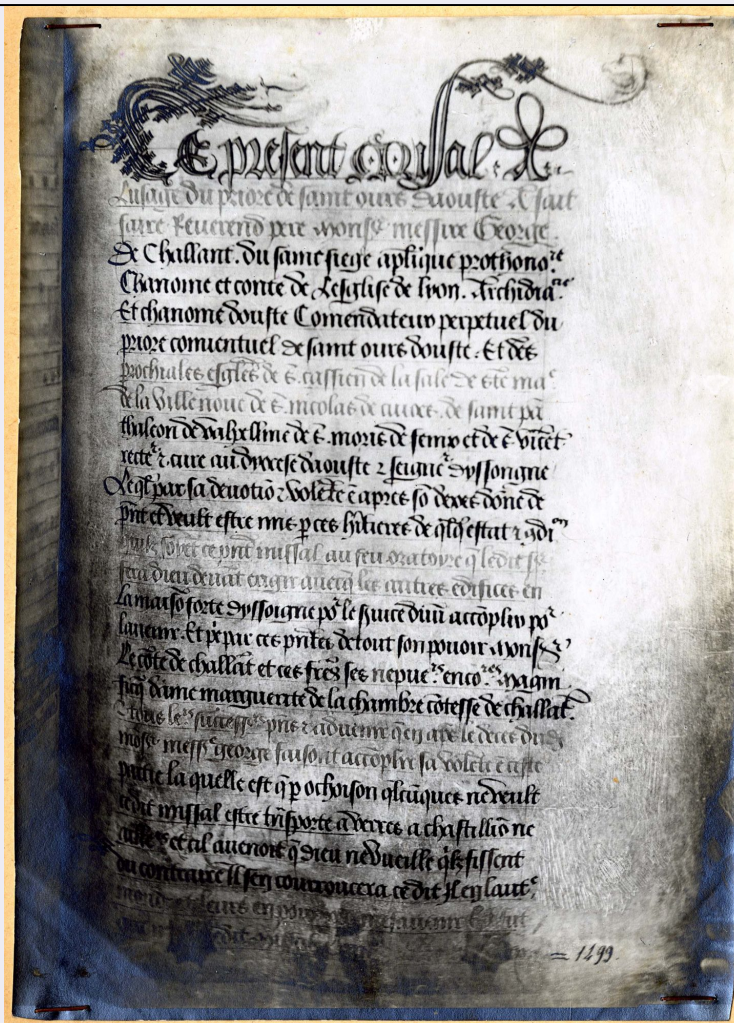 Ce present missal. A
Lusage du priore de saint ours daouste A fait
faire Reverend pere monsr messire George
De Challant. du saint siege aplique prothonore
Chanoine et conte de Lesglise de lyon. Archidiacre
Et chanoine douste Comendateur perpetuel du
priore conventuel de saint ours douste. Et des
prochiales esglises de s. cassien de la sale de ste ma
de la villenove de s. nicolas de de saint pa
thaleon de valpelline de s. moris de fenix et de s vicet
recte cure au dyocese daouste z seigne dyssoigne
Leql par sa devotio z volete e apres so deces done de
pnt et veult estre mis p ces heritieres de qlq estat z gdi
ce pnt missal au feu oratoyre q ledit sr
fera dieu devat erigir avecq les autres edifices en
La maiso forte dyssoigne po le service divi accoplir po
lavenir. Et p par ces pntes de tout son povoir monsr
Le cote de challat et ces fres ses nepue enco magni
ficq dame marguerite de la chambre cotesse de challat.
z tous le successe pns z advenir qen ape le deces dud
mosr messr george faisont accoplir sa volete e ceste
partie la quelle est q p ochoison qlcuques ne veult
cedit missal estre trasporte a verres a chastillio ne
ailler et cil avenoit q dieu ne vueille qlz fissent
du contraire Il sen courroucera ce dit Il en laut
monde
= 1499.